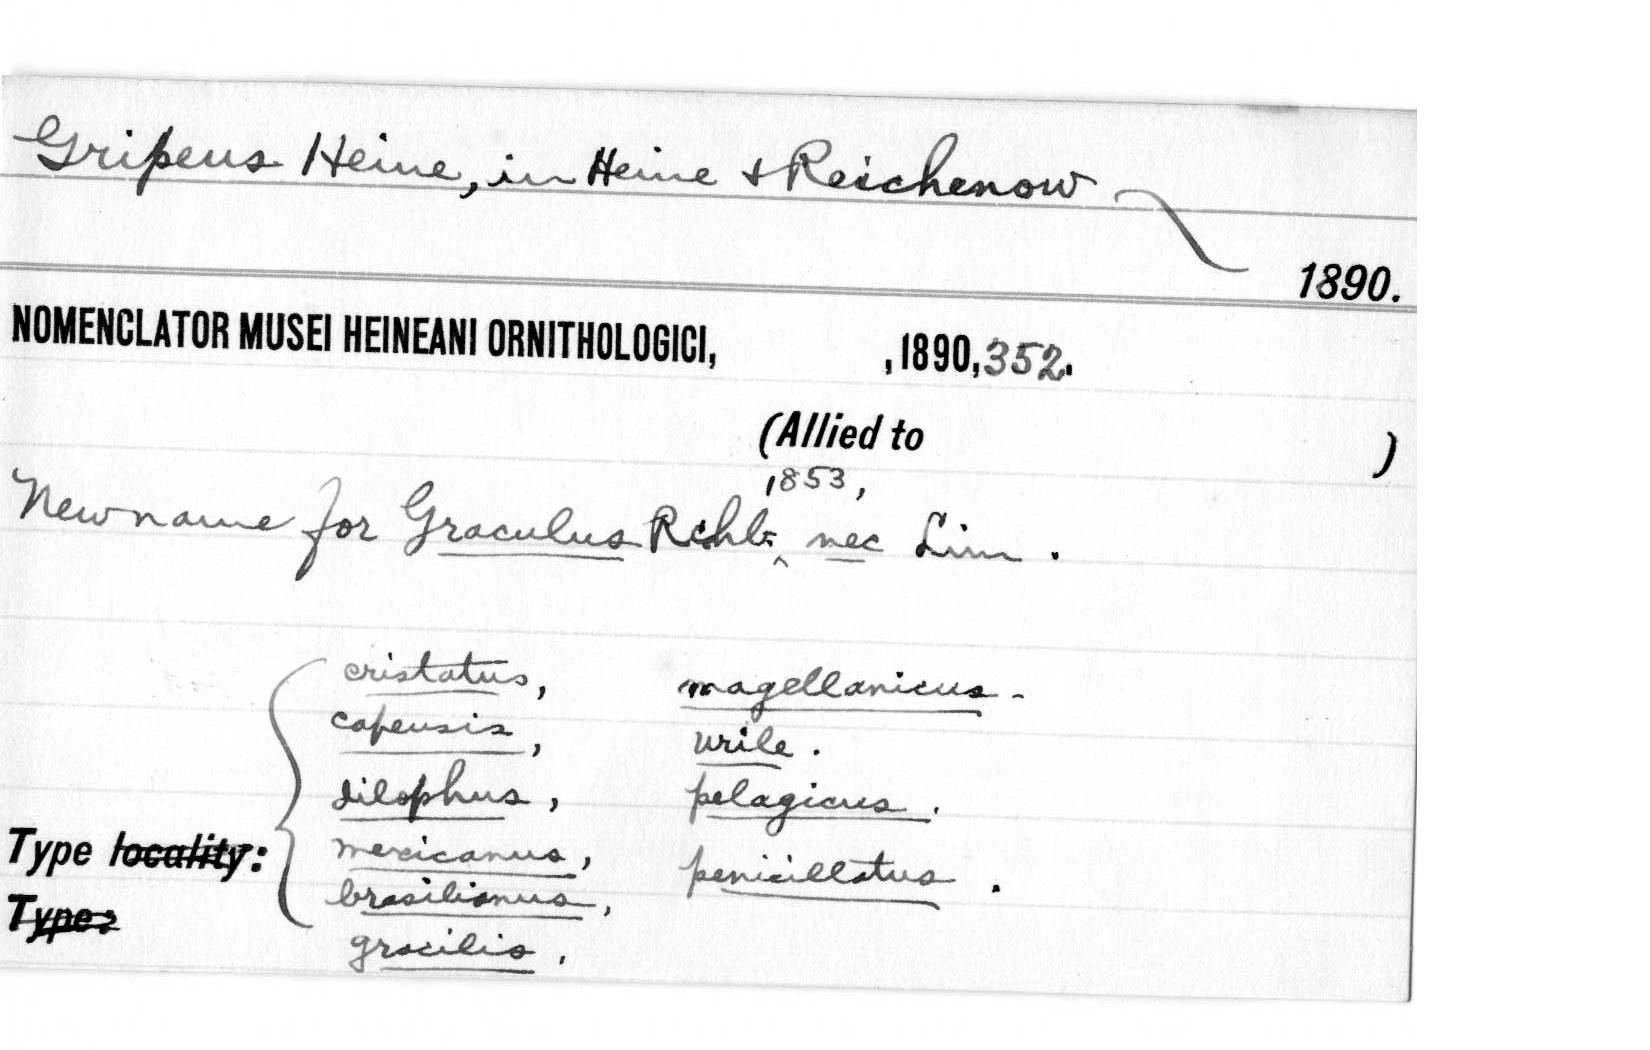 Gripeus Heine, in Heine & Reichenow
1890.
NOMENCLATOR MUSEI HEINEANI ORNITHOLOGICI, , 1890, 352.
(Allied to )
1853,
New name for Graculus Rchb. ^ nec Linn.
cristatus, magellanicus -
capensis, urile.
dilophus, pelagicus.
Type locality: mexicanus, penicillatus.
Type: brasilianus,
gracilis.